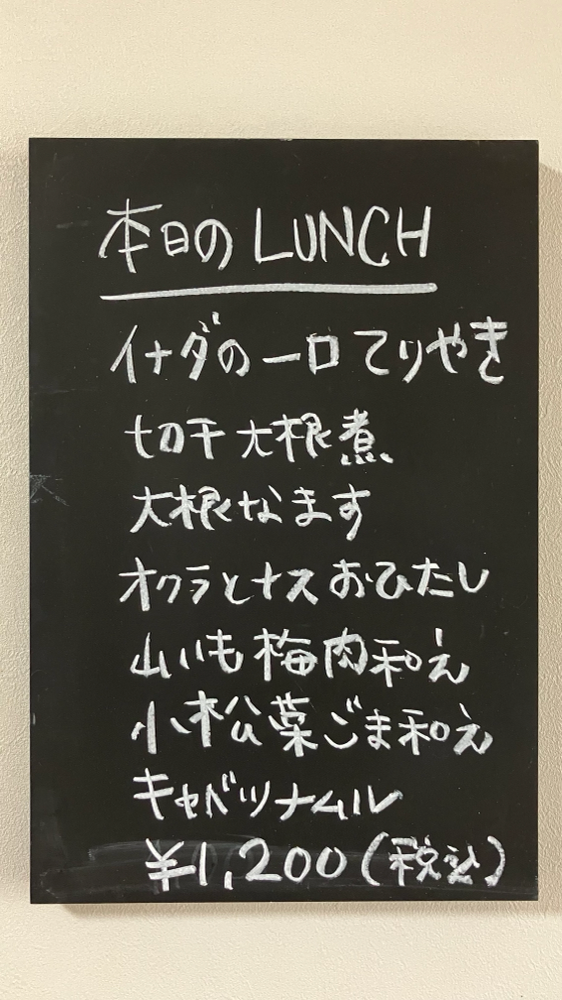 本日のLUNCH
イナダの一口てりやき
切干大根煮
大根なます
オクラとナスおひたし
山いも梅肉和え
小松菜ごま和え
キャベツナムル
¥1,200(税込)